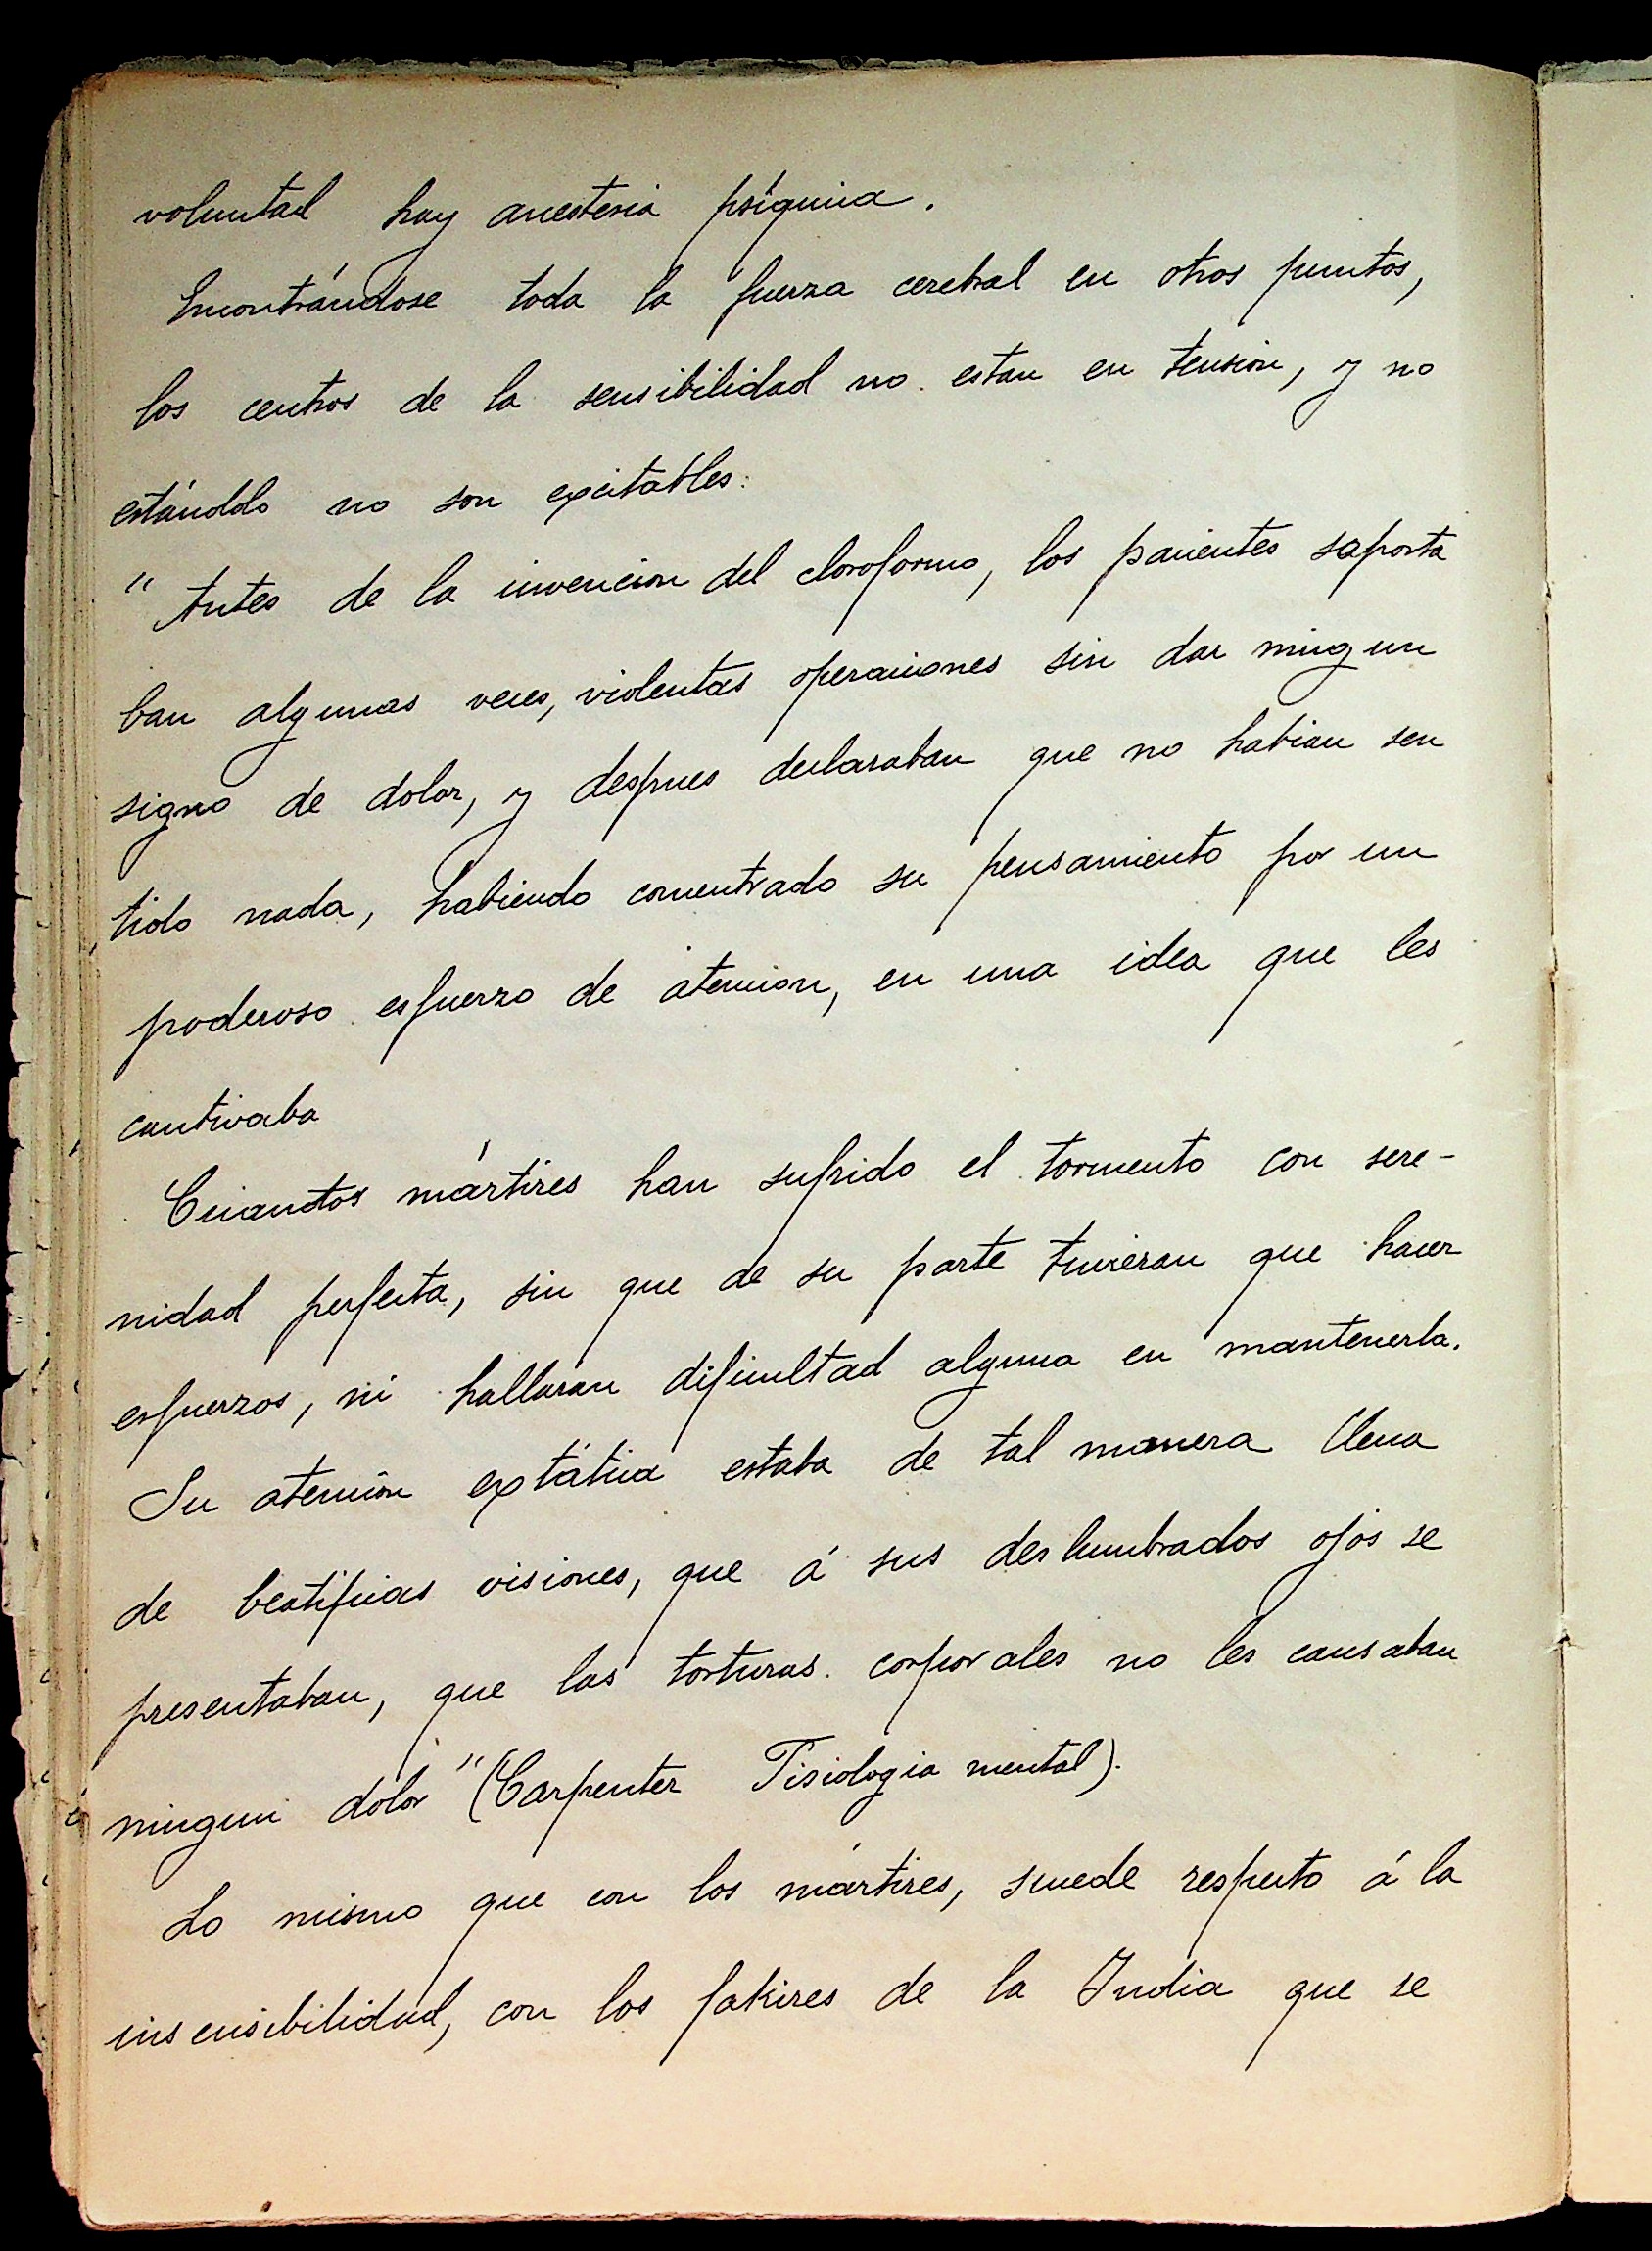 voluntad hay anestesia psíquica.
Encontrándose toda la fuerza cerebral en otros puntos,
los centros de la sensibilidad no estan en tension, y no
estándolo no son excitables.
" Antes de la invencion del cloroformo, los pacientes soporta
ban algunas veces, violentas operaciones sin dar ningun
signo de dolor, y despues declaraban que no habian sen
tido nada, habiendo concentrado su pensamiento por un
poderoso esfuerzo de atencion, en una idea que les
cautivaba
Cuantos mártires han sufrido el tormento con sere-
nidad perfecta, sin que de su parte tuvieran que hacer
esfuerzos, ni hallaran dificultad alguna en mantenerla.
Su atencion extática estaba de tal manera llena
de beatificas visiones, que á sus deslumbrados ojos se
presentaban, que las torturas corporales no les causaban
ningun dolor" (Carpenter Fisiologia mental).
Lo mismo que con los mártires, sucede respecto á la
insensibilidad, con los fakires de la India que se